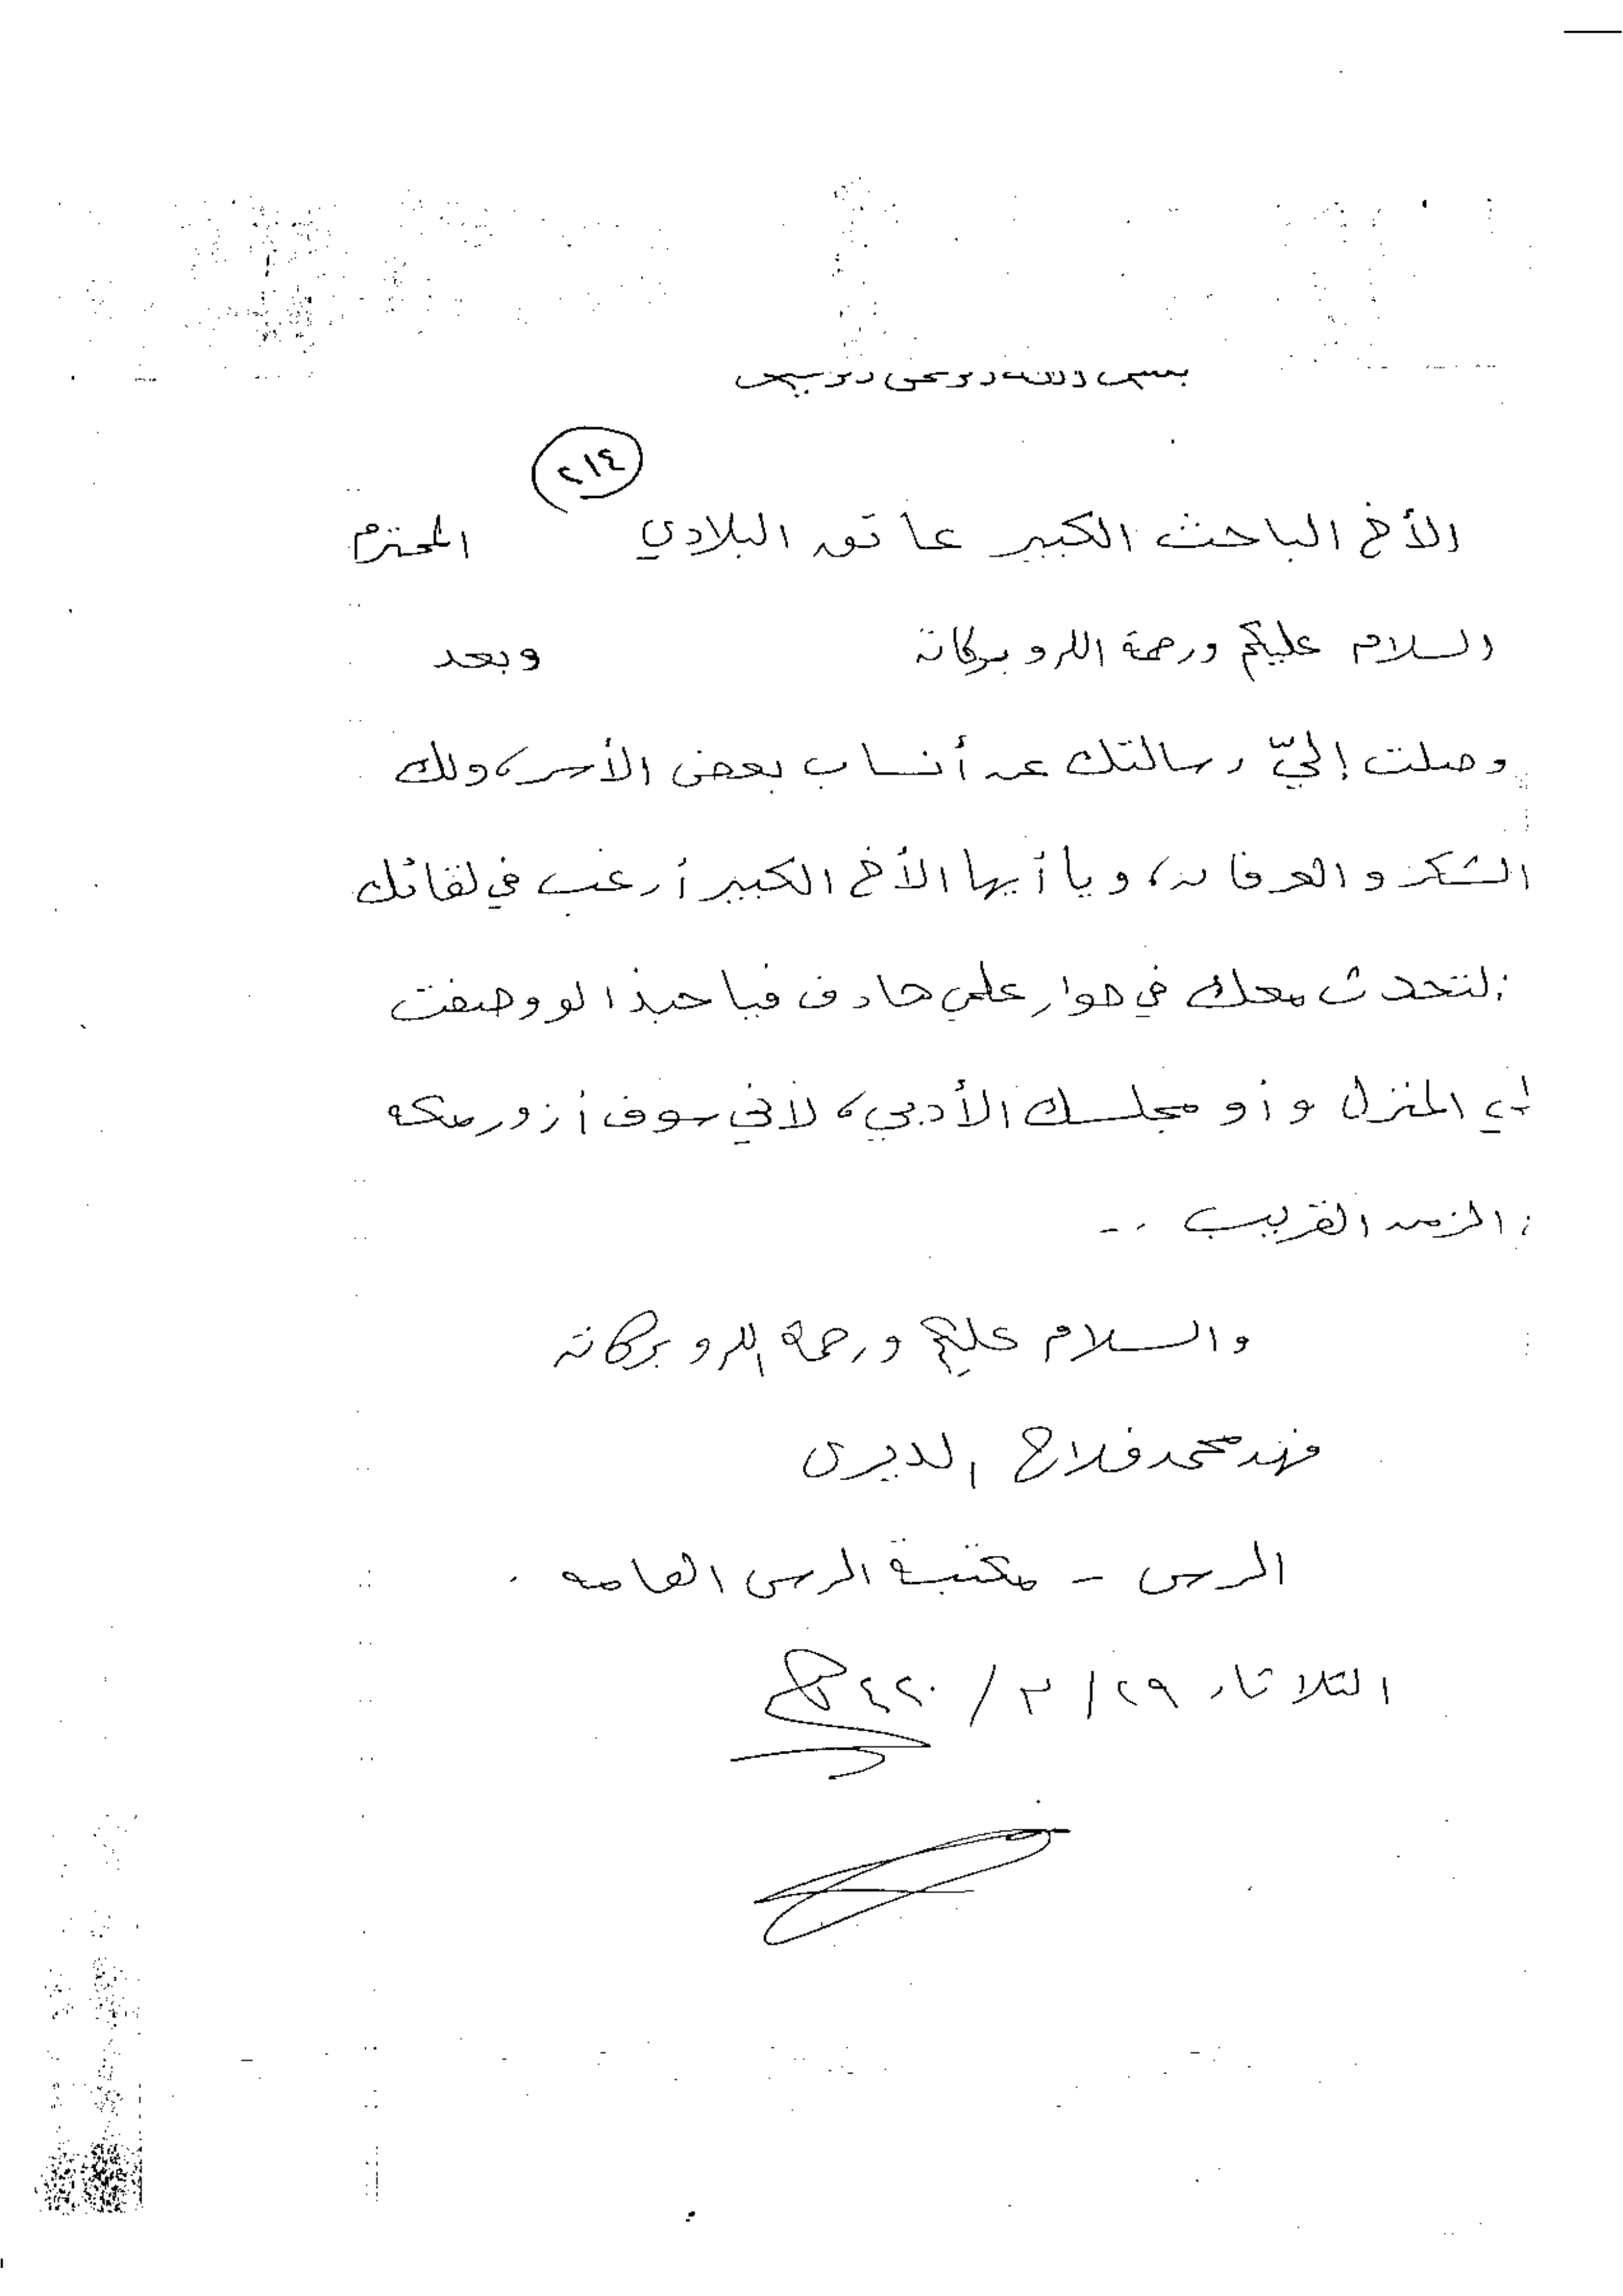 بسم الله الرحمن الرحيم
٢١٤
الأخ الباحث الكبير عاتق البلادي المحترم
السلام عليكم ورحمة الله وبركاته وبعد
وصلت إليّ رسالتك عن أنساب بعض الأسر، ولك
الشكر والعرفان، ويا أيها الأخ الكبير أرغب في لقائك
لنتحدث معك في حوار علمي هادف فيا حبذا لو وصفت
لي المنزل و أو مجلسك الأدبي، لأني سوف أزور مكه
الزمن القريب ..
والسلام عليكم ورحمة الله وبركاته
فهد محمد فلاح الديري
الرس - مكتبة الرس العامه .
الثلاثاء ٢٩ / ٣ /